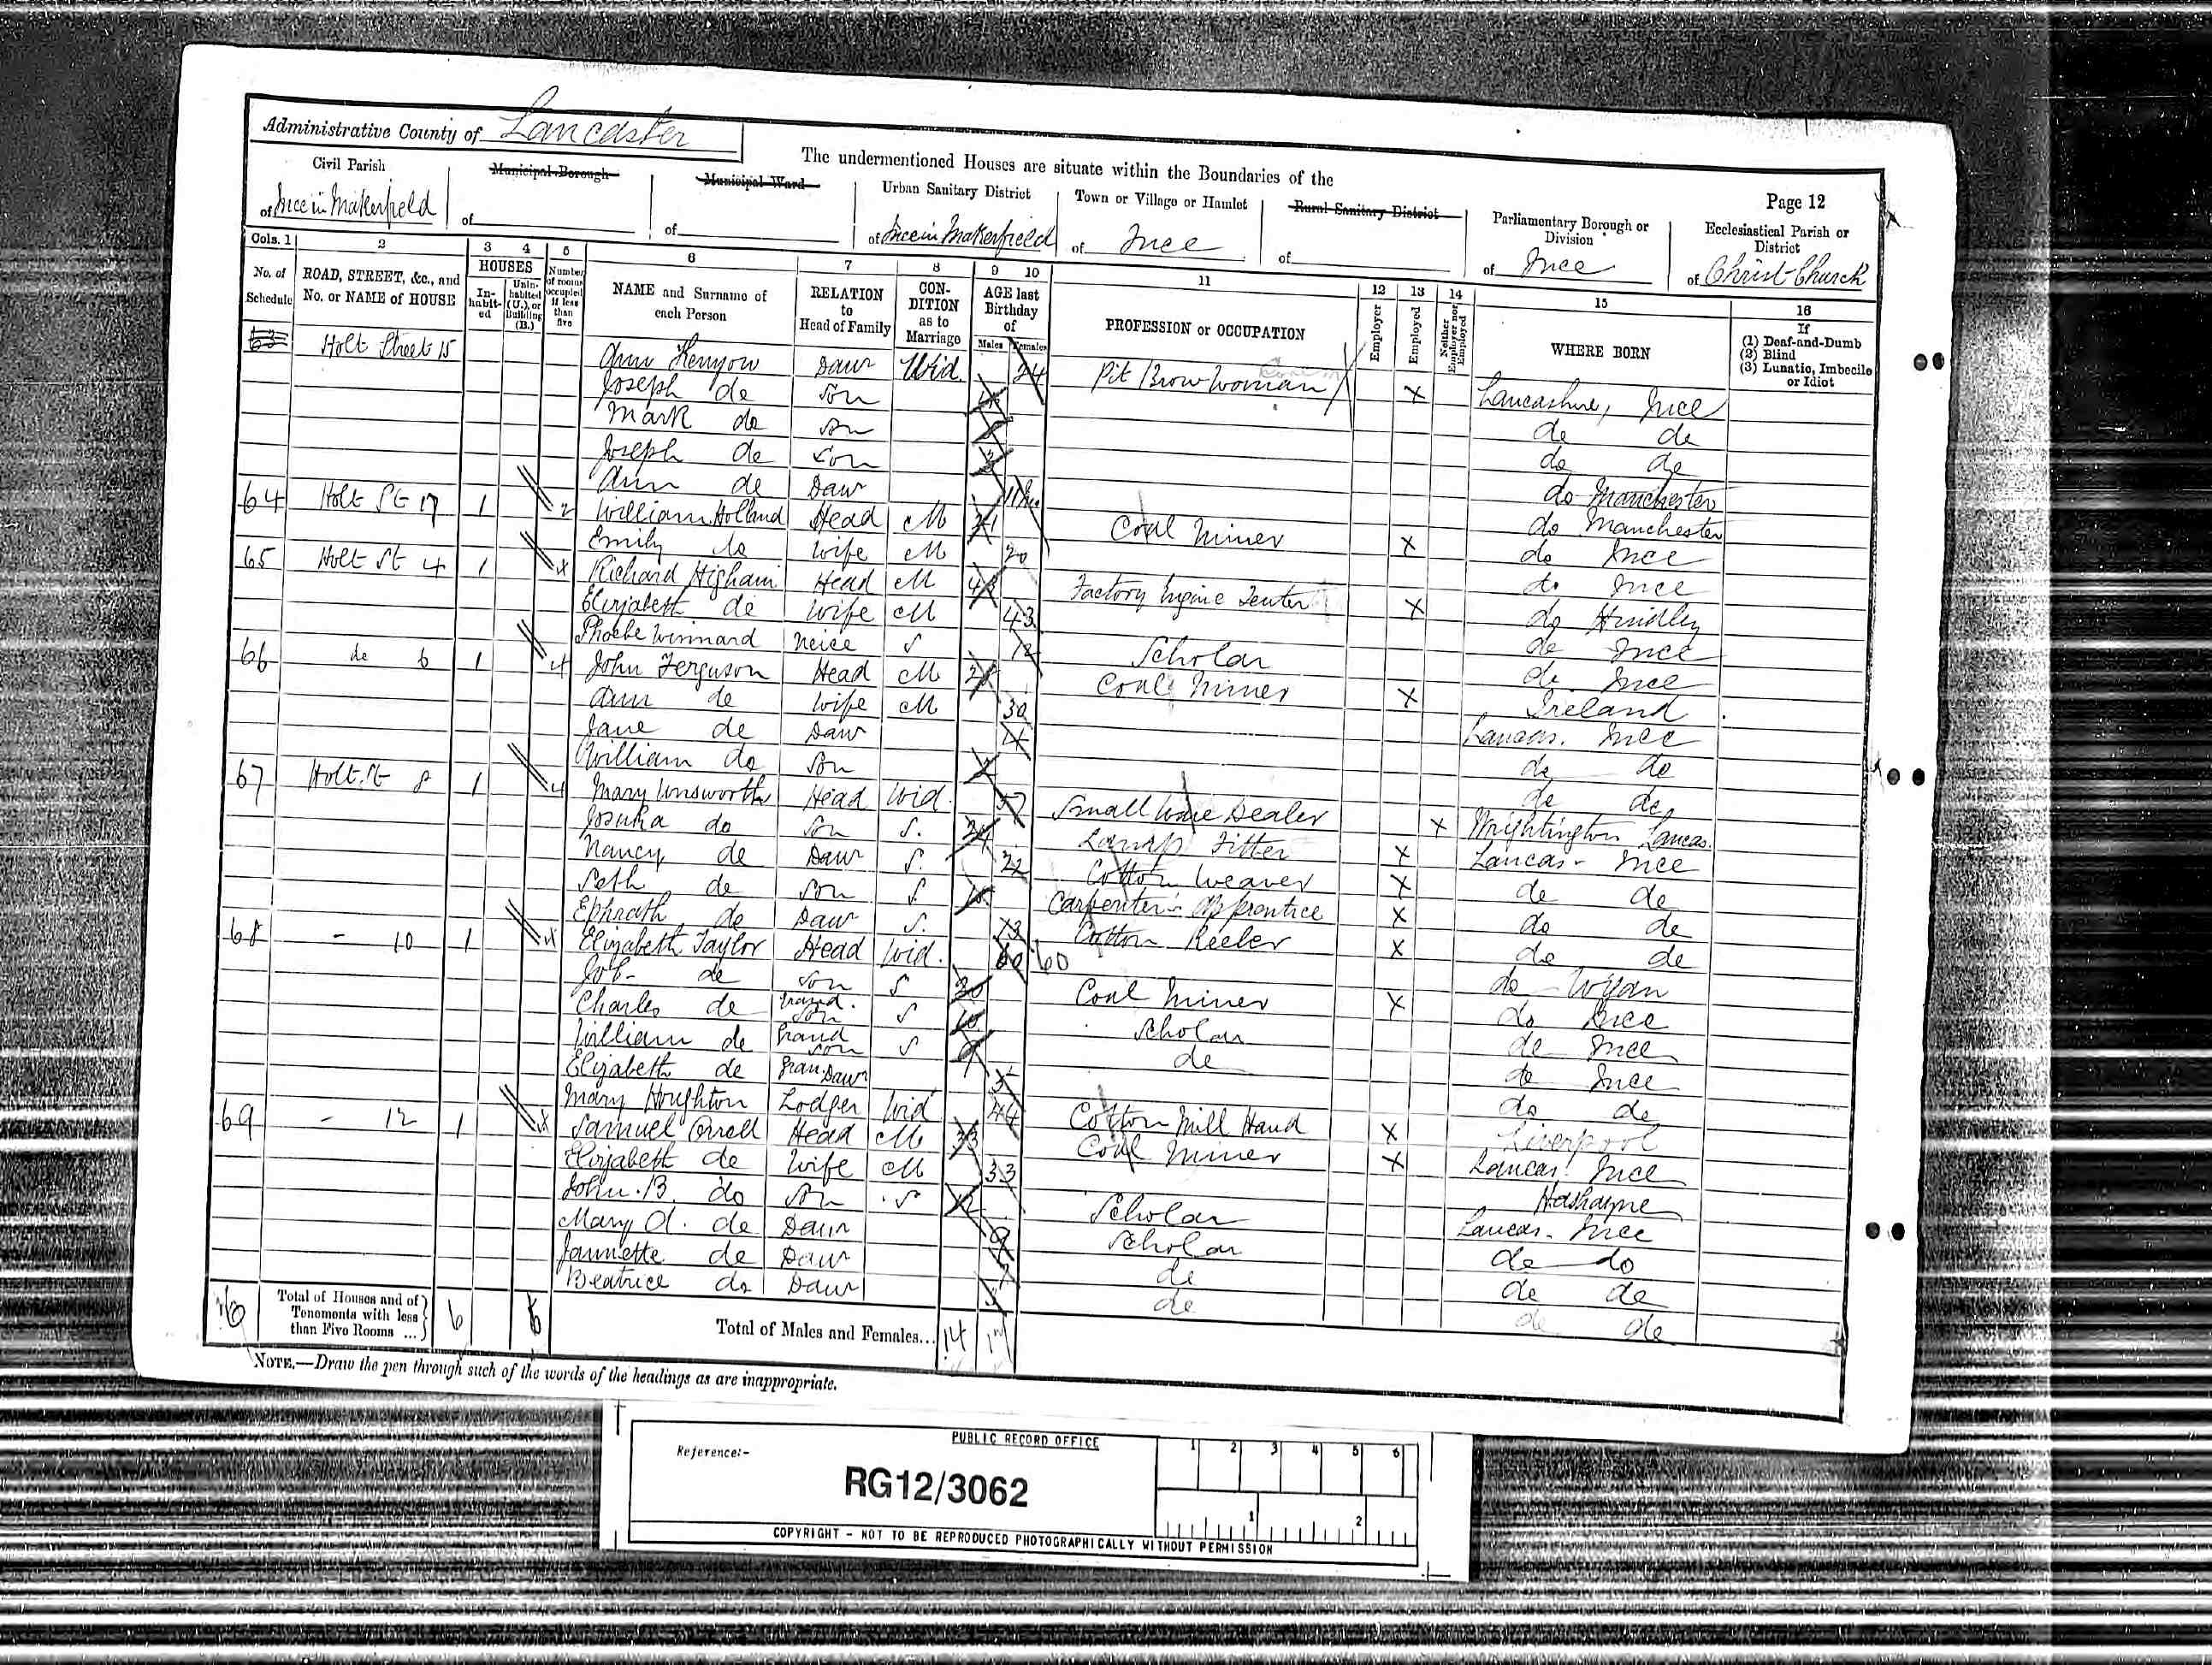 Administrative County of Lancaster
The undermentioned Houses are situate within the Boundaries of the
Page 12
Civil Parish of Ince in Makerfield
Municipal Borough of
Municipal Ward of
Urban Sanitary District of Ince in Makerfield
Town or Village or Hamlet of Ince
Rural Sanitary District of
Parliamentary Borough or Division of Ince
Ecclesiastical Parish or District of Christ Church
Cols. 1 2 3 4 5 6 7 8 9 10 11 12 13 14 15 16
No. of Schedule
ROAD, STREET, &c., and No. or NAME of HOUSE
HOUSES
In-habit-ed
Unin-habited (U.), or Building (B.)
Number of rooms occupied if less than five
NAME and Surname of each Person
RELATION to Head of Family
CON-DITION as to Marriage
AGE last Birthday of
Males Females
PROFESSION or OCCUPATION
Employer
Employed
Neither Employer nor Employed
WHERE BORN
If
(1) Deaf-and-Dumb
(2) Blind
(3) Lunatic, Imbecile or Idiot
63 Holt Street 15 Ann Kenyon Daur Wid. 24 Pit Brow Woman X Lancashire, Ince
Joseph do Son do do
Mark do Son do do
Joseph do Son do Manchester
Ann do Daur 11 do Manchester
64 Holt St 17 1 2 William Holland Head M 21 Coal Miner X do Ince
Emily do Wife M 20 do Ince
65 Holt St 4 1 Richard Higham Head M 48 Factory Engine Tenter X do Hindley
Elizabeth do Wife M 43 do Ince
Phoebe Winnard Neice S 12 Scholar do Ince
66 do 6 1 4 John Ferguson Head M 28 Coal Miner X Ireland
Ann do Wife M 30 Lancas. Ince
Jane do Daur 4 do do
William do Son do do
67 Holt St 8 1 4 Mary Unsworth Head Wid. 57 Small Ware Dealer X Wrightington Lancas.
Joshua do Son S. Lamp Fitter X Lancas - Ince
Nancy do Daur S. 22 Cotton Weaver X do do
Seth do Son S. Carpenter's Apprentice X do do
Ephrath do Daur S. 13 Cotton Reeler X do do
68 - 10 1 4 Elizabeth Taylor Head Wid. 60 60 do Wigan
Job do Son S 30 Coal Miner X do Ince
Charles do Grand Son S 10 Scholar do Ince
William do Grand Son S 9 do do Ince
Elizabeth do Gran. Daur 5 do do
Mary Houghton Lodger Wid 44 Cotton Mill Hand X Liverpool
69 - 12 1 4 Samuel Orrell Head M 33 Coal Miner X Lancas. Ince
Elizabeth do Wife M 33
John. B. do Son S 12 Scholar Lancas. Ince
Mary A. do Daur 9 Scholar do do
Jannette do Daur 7 do do do
Beatrice do Daur 5 do do do
Total of Houses and of Tenements with less than Five Rooms ... 6 6
Total of Males and Females... 14 17
NOTE.—Draw the pen through such of the words of the headings as are inappropriate.
Reference:-
PUBLIC RECORD OFFICE
1 2 3 4 5 6
RG12/3062
1 2
COPYRIGHT - NOT TO BE REPRODUCED PHOTOGRAPHICALLY WITHOUT PERMISSION